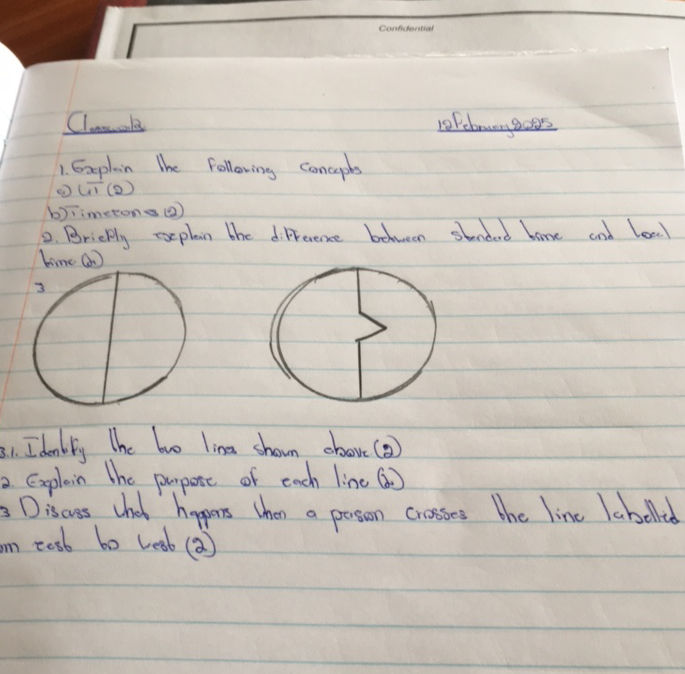 Confidential
Classwork
12 February 2025
1. Explain the following concepts
a)
b) Timezones (2)
2. Briefly explain the difference between standard time and local
time (2)
3
3.1. Identify the two lines shown above (2)
2 Explain the purpose of each line (2)
3 Discuss what happens when a person crosses the line labelled
om east to west (2)